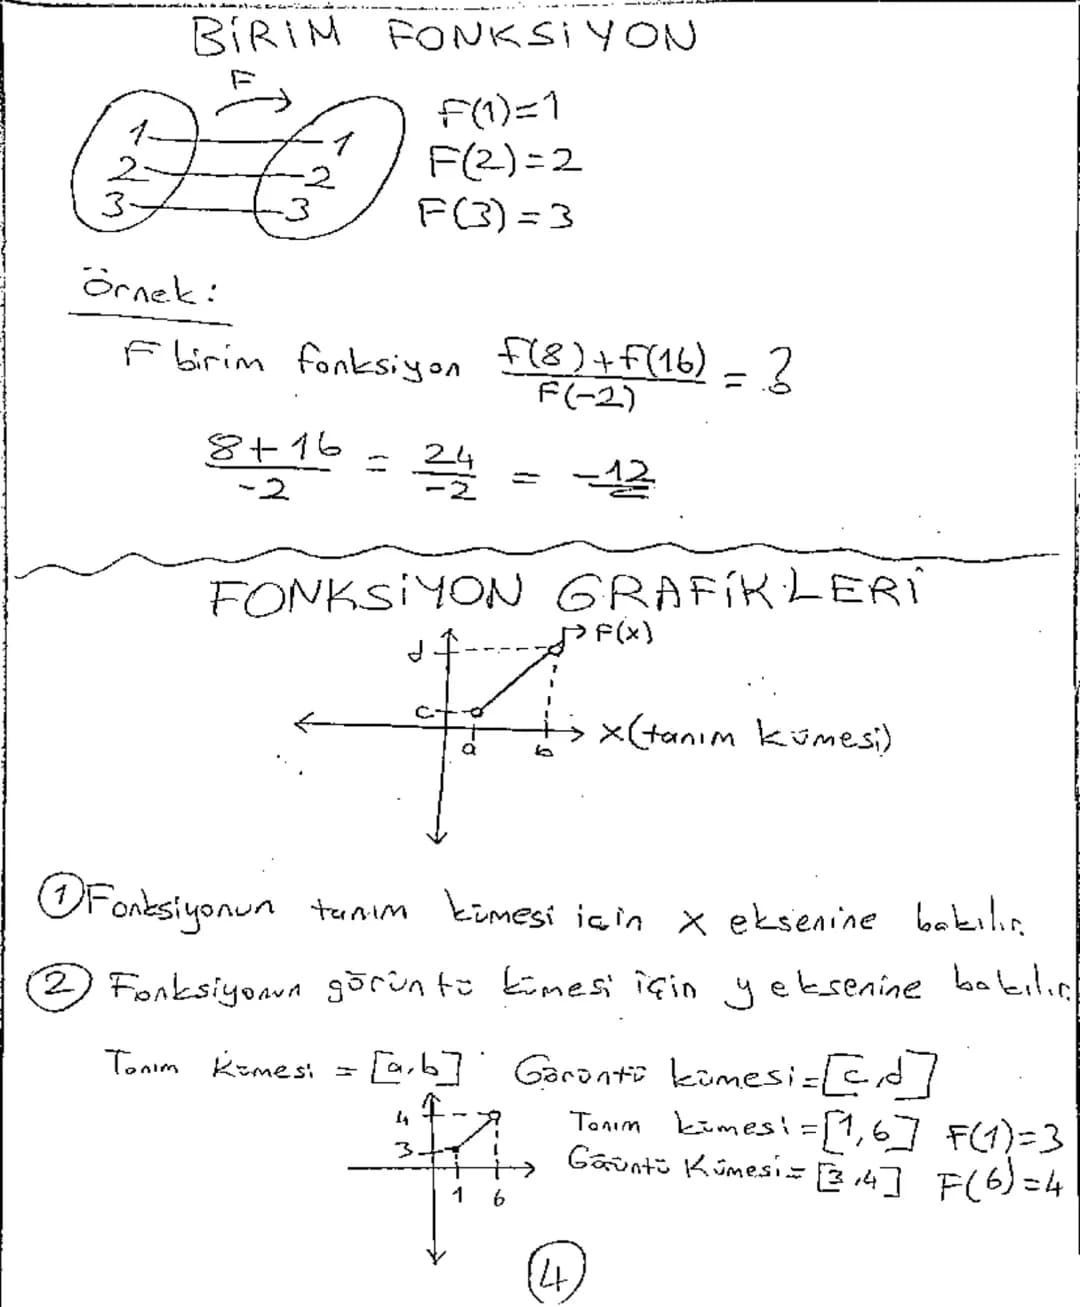 BİRİM FONKSİYON
F
1 1
2 2
3 3
F(1)=1
F(2)=2
F(3)=3
Örnek:
F birim fonksiyon f(8)+f(16) / F(-2) = ?
8+16 / -2 = 24 / -2 = -12
FONKSİYON GRAFİKLERİ
d F(x)
c
a b x(tanım kümesi)
1 Fonksiyonun tanım kümesi için x eksenine bakılır.
2 Fonksiyonun görüntü kümesi için y eksenine bakılır.
Tanım Kümesi = [a,b] Görüntü kümesi=[c,d]
4 Tanım kümesi=[1,6] F(1)=3
3 Göüntü Kümesi= [3,4] F(6)=4
1 6
4